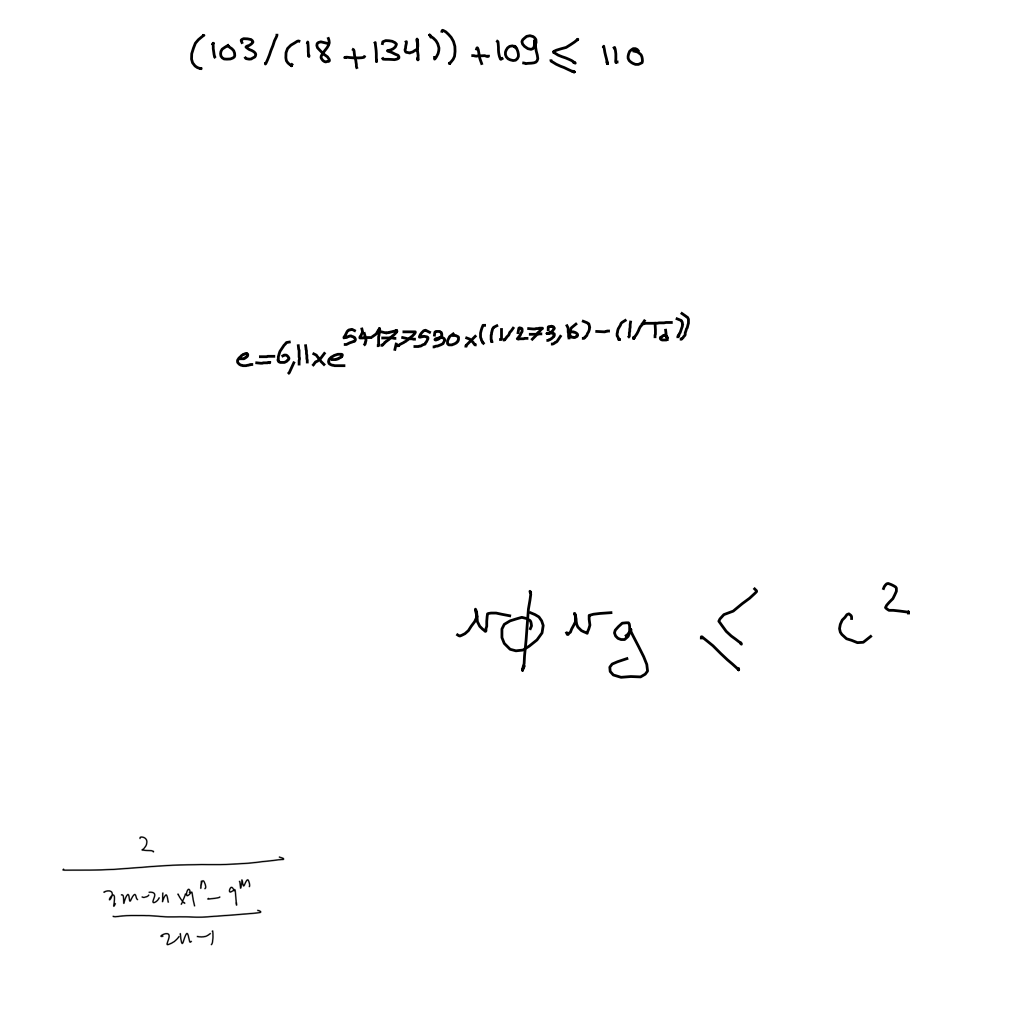 (103/(18+134))+109≤110
e=6,11xe^5417,7530x((1/273,16)-(1/T_d))
vϕvg ≤ c²
2
3m-2n x9ⁿ-9ᵐ
2n-1